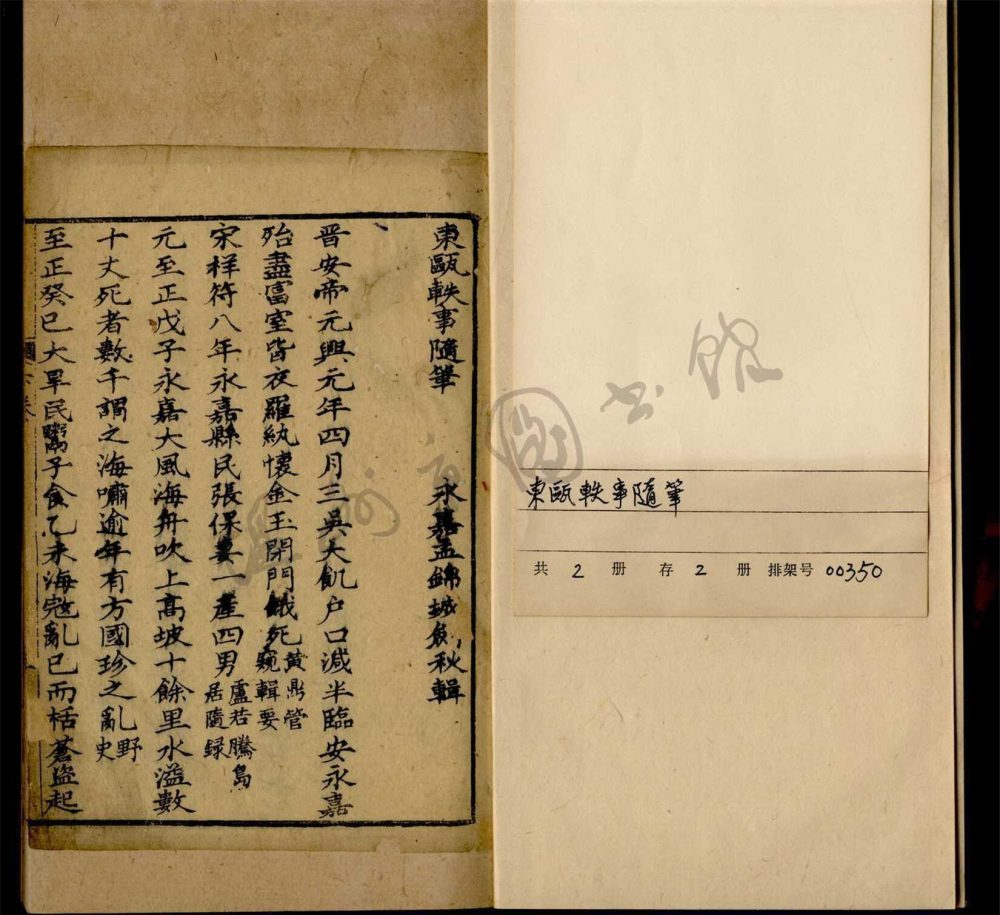 東甌軼事隨筆
永嘉孟錦城魚秋輯
晋安帝元興元年四月三吳大飢户口減半臨安永嘉
殆盡富室皆衣羅紈懷金玉閉門餓死黄鼎管窺輯要
宋祥符八年永嘉縣民張保妻一產四男盧若騰島居隨録
元至正戊子永嘉大風海舟吹上高坡十餘里水溢數
十丈死者數千謂之海嘯逾年有方國珍之亂野史
至正癸巳大旱民鬻子食乙未海寇亂已而栝蒼盜起
東甌軼事隨筆
共 2 册 存 2 册 排架号 00350
圖书館